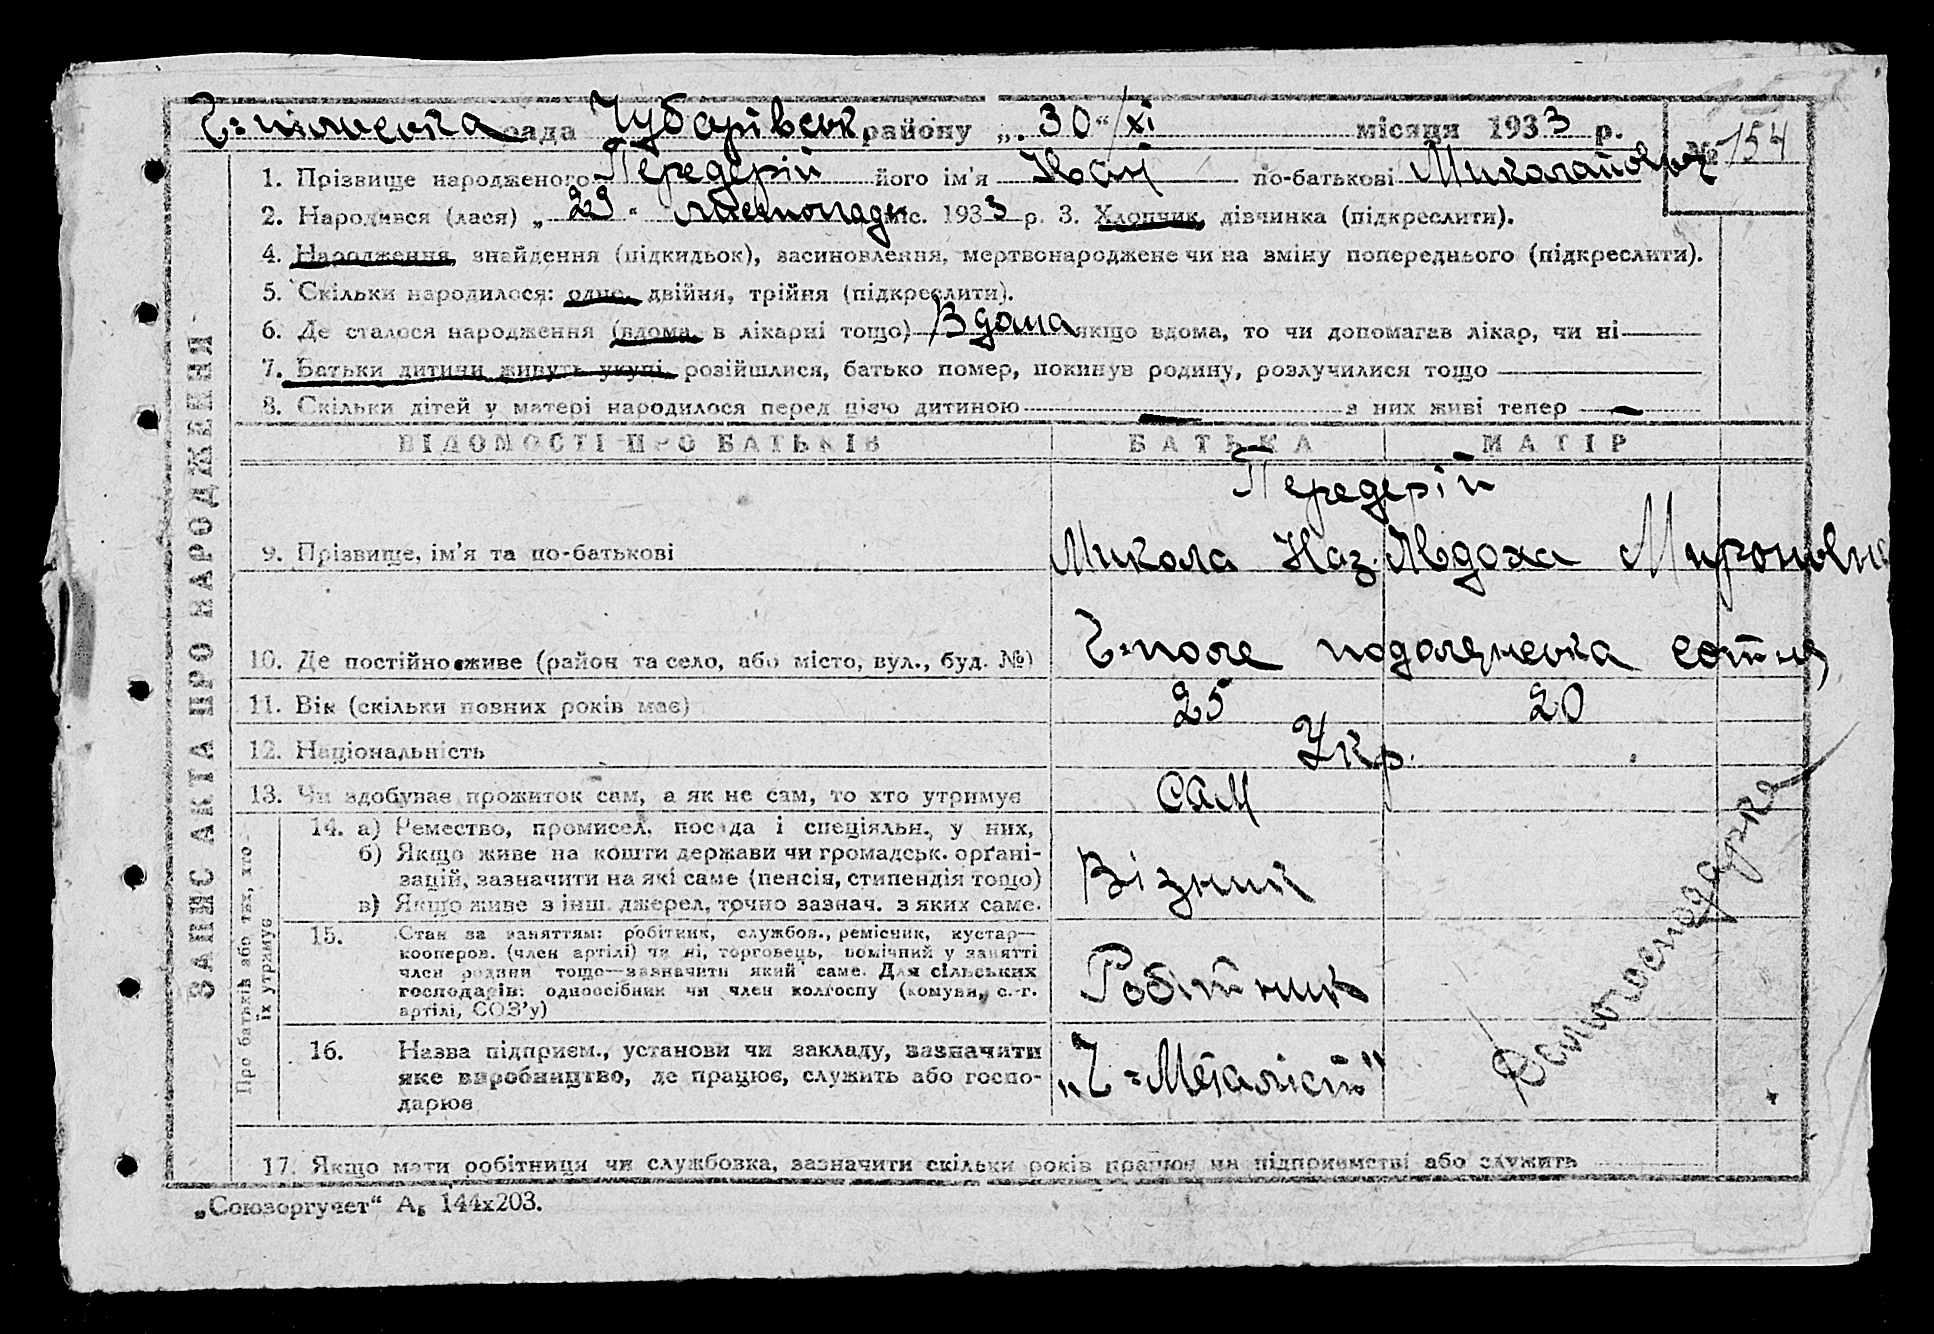 Г=пільська рада Чубарівськ району „ 30 “/XI місяця 1933 р.
№ 154
1. Прізвище народженого Передерій його ім'я Іван по-батькові Миколайович
2. Народився (лася) „ 29 “ листопада міс. 1933 р. 3. Хлопчик, дівчинка (підкреслити).
4. Народження, знайдення (підкидьок), засиновлення, мертвонароджене чи на зміну попереднього (підкреслити).
5. Скільки народилося: одне, двійня, трійня (підкреслити).
6. Де сталося народження (вдома, в лікарні тощо) Вдома якщо вдома, то чи допомагав лікар, чи ні
7. Батьки дитини живуть укупі, розійшлися, батько помер, покинув родину, розлучилися тощо
8. Скільки дітей у матері народилося перед цією дитиною — з них живі тепер —
ЗАПИС АКТА ПРО НАРОДЖЕННЯ
ВІДОМОСТІ ПРО БАТЬКІВ БАТЬКА МАТІР
Передерій
9. Прізвище, ім'я та по-батькові Микола Наз. Явдоха Миронівна
10. Де постійно живе (район та село, або місто, вул., буд. №) Г=поле подолянська сотня
11. Вік (скільки повних років має) 25 20
12. Національність Укр.
13. Чи здобуває прожиток сам, а як не сам, то хто утримує САМ
Про батьків або тих, хто їх утримує
14. а) Ремество, промисел, посада і спеціяльн. у них,
б) Якщо живе на кошти держави чи громадськ. орґані-
зацій, зазначити на які саме (пенсія, стипендія тощо)
в) Якщо живе з інш. джерел, точно зазнач. з яких саме.
Візник
Домогосподарка
15. Стан за заняттям: робітник, службов., ремісник, кустар—
кооперов. (член артілі) чи ні, торговець, помічний у занятті
член родини тощо—зазначити який саме. Для сільських
господарів: одноосібник чи член колгоспу (комуни, с.-г.
артілі, СОЗ'у)
Робітник
16. Назва підприєм., установи чи закладу, зазначити
яке виробництво, де працює, служить або госпо-
дарює
„Г=Металіст"
17. Якщо мати робітниця чи службовка, зазначити скільки років працює на підприємстві або служить
„Союзоргучет“ А₅ 144х203.